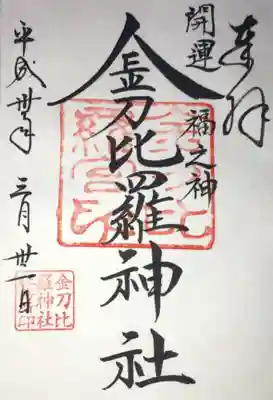 奉拝
開運
福之神
金刀比羅神社
平成卅年
三月卅一日
金刀比
羅神社